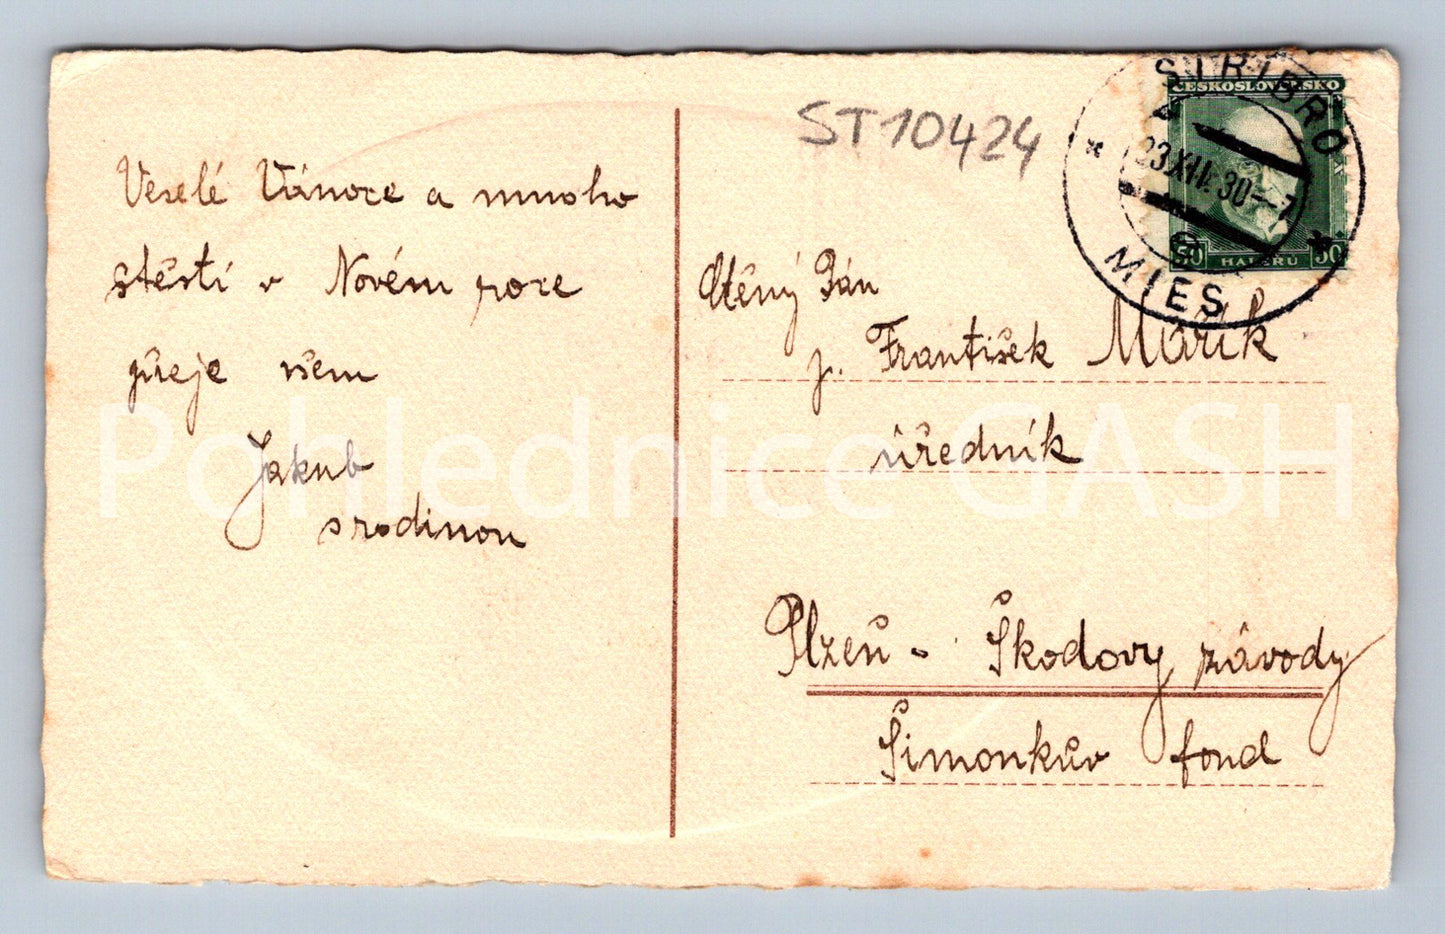 ST10424
STŘÍBRO
23.XII.30-7
MIES
ČESKOSLOVENSKO
50 HALÉŘŮ 50
Veselé Vánoce a mnoho
štěstí v Novém roce
přeje všem
Jakub
s rodinou
Ctěný Pán
p. František Mařík
úředník
Plzeň - Škodovy závody
Šimonkův fond
Pohlednice GASH